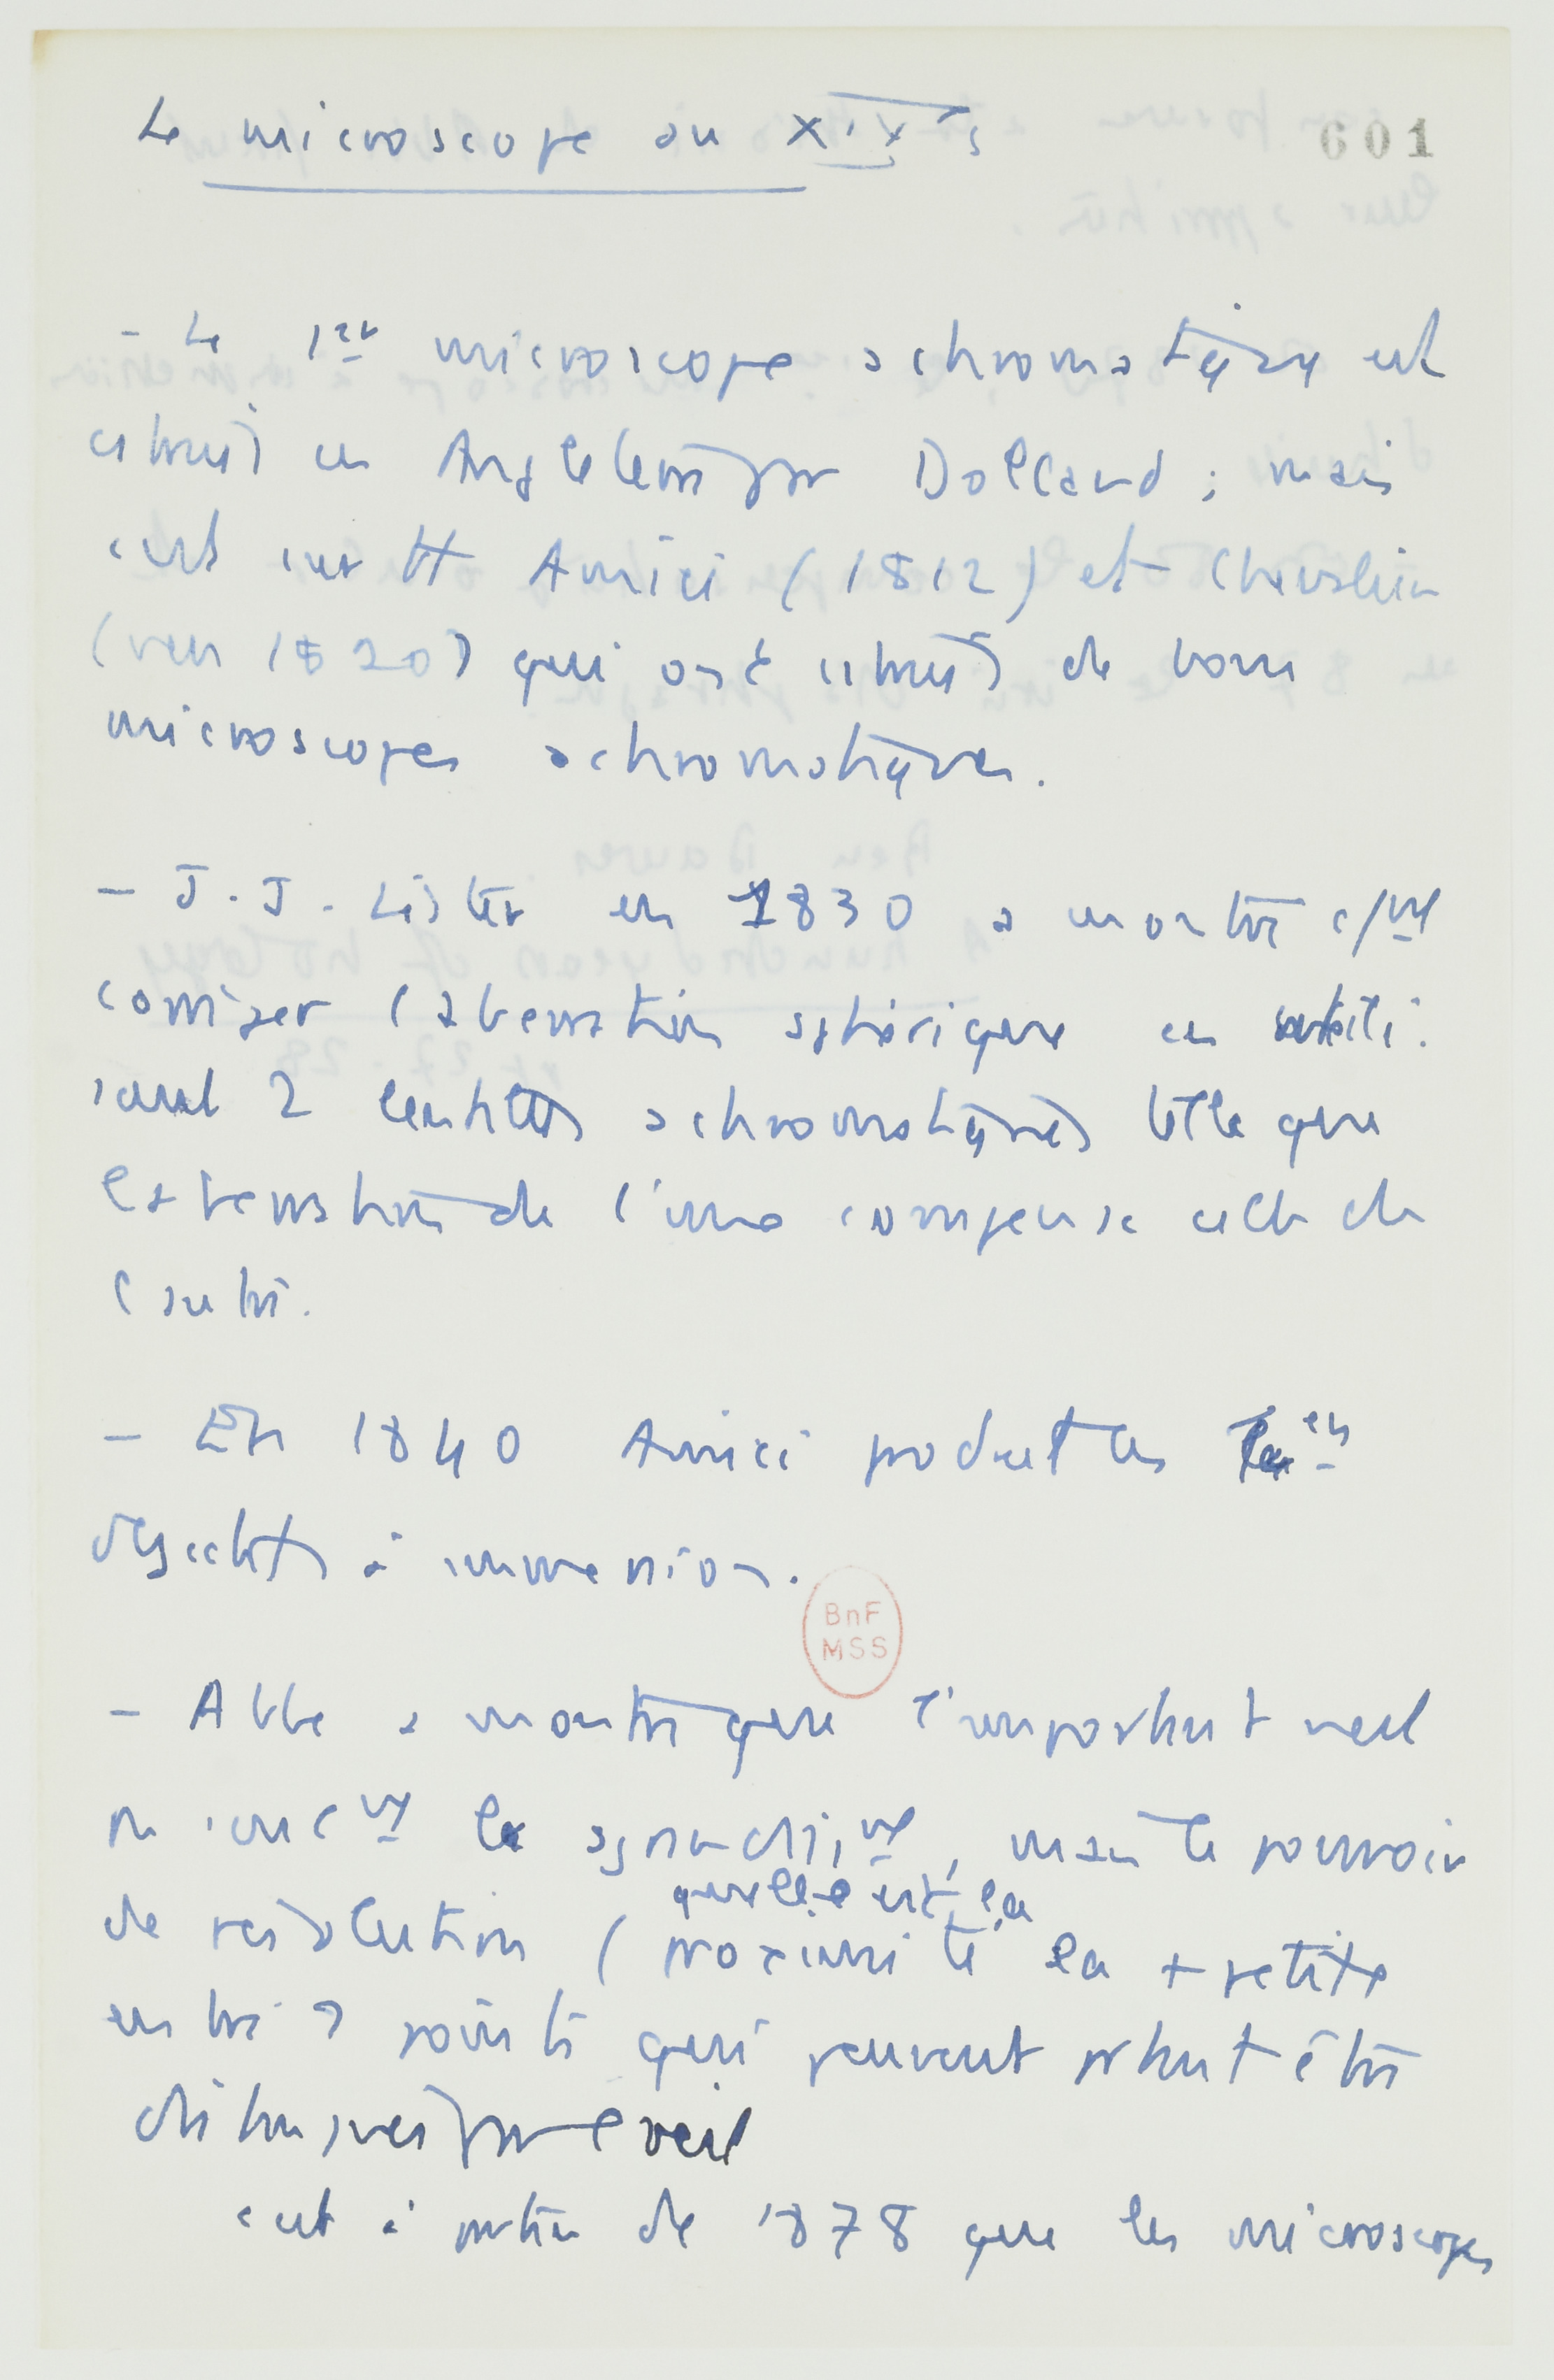 Le microscope au XIXe s
601
- Le 1er microscope achromatique est
construit en Angleterre par Dolland ; mais
c'est surtt Amici (1812) et Chevalier
(vers 1820) qui ont construit de bons
microscopes achromatiques.
- J. J. Lister en 1830 a montré cmt
corriger l'aberration sphérique en utili-
sant 2 lentilles achromatiques telle que
l'aberration de l'une compense celle de
l'autre.
- En 1840 Amici produit les 1ers
objectifs à immersion.
BnF
MSS
- Abbe a montré que l'important n'est
pas seulmt l'agrandismt, mais le pouvoir
de résolution (quelle est la
proximité la + petite
entre 2 points qui peuvent pourtant être
distingués par l'oeil
c'est à partir de 1878 que les microscopes